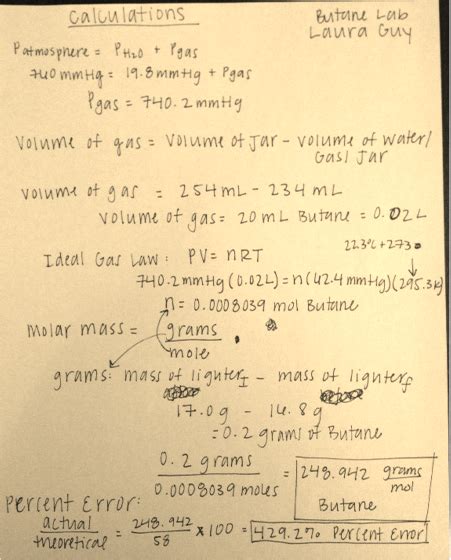 Calculations
Butane Lab
Laura Guy
Patmosphere = PH2O + Pgas
760 mmHg = 19.8 mmHg + Pgas
Pgas = 740.2 mmHg
Volume of gas = Volume of Jar - Volume of Water/
Gas/ Jar
Volume of gas = 254 mL - 234 mL
Volume of gas = 20 mL Butane = 0.02 L
22.3°C + 273
Ideal Gas Law: PV = nRT
740.2 mmHg (0.02L) = n(62.4 mmHg)(295.3K)
n = 0.0008039 mol Butane
Molar mass = grams
mole
grams: mass of lighter I - mass of lighter f
17.0g - 16.8g
= 0.2 grams of Butane
0.2 grams
0.0008039 moles
= 248.942 grams
mol
Butane
Percent Error:
actual
theoretical
= 248.942
58
x 100 = 429.2% Percent Error